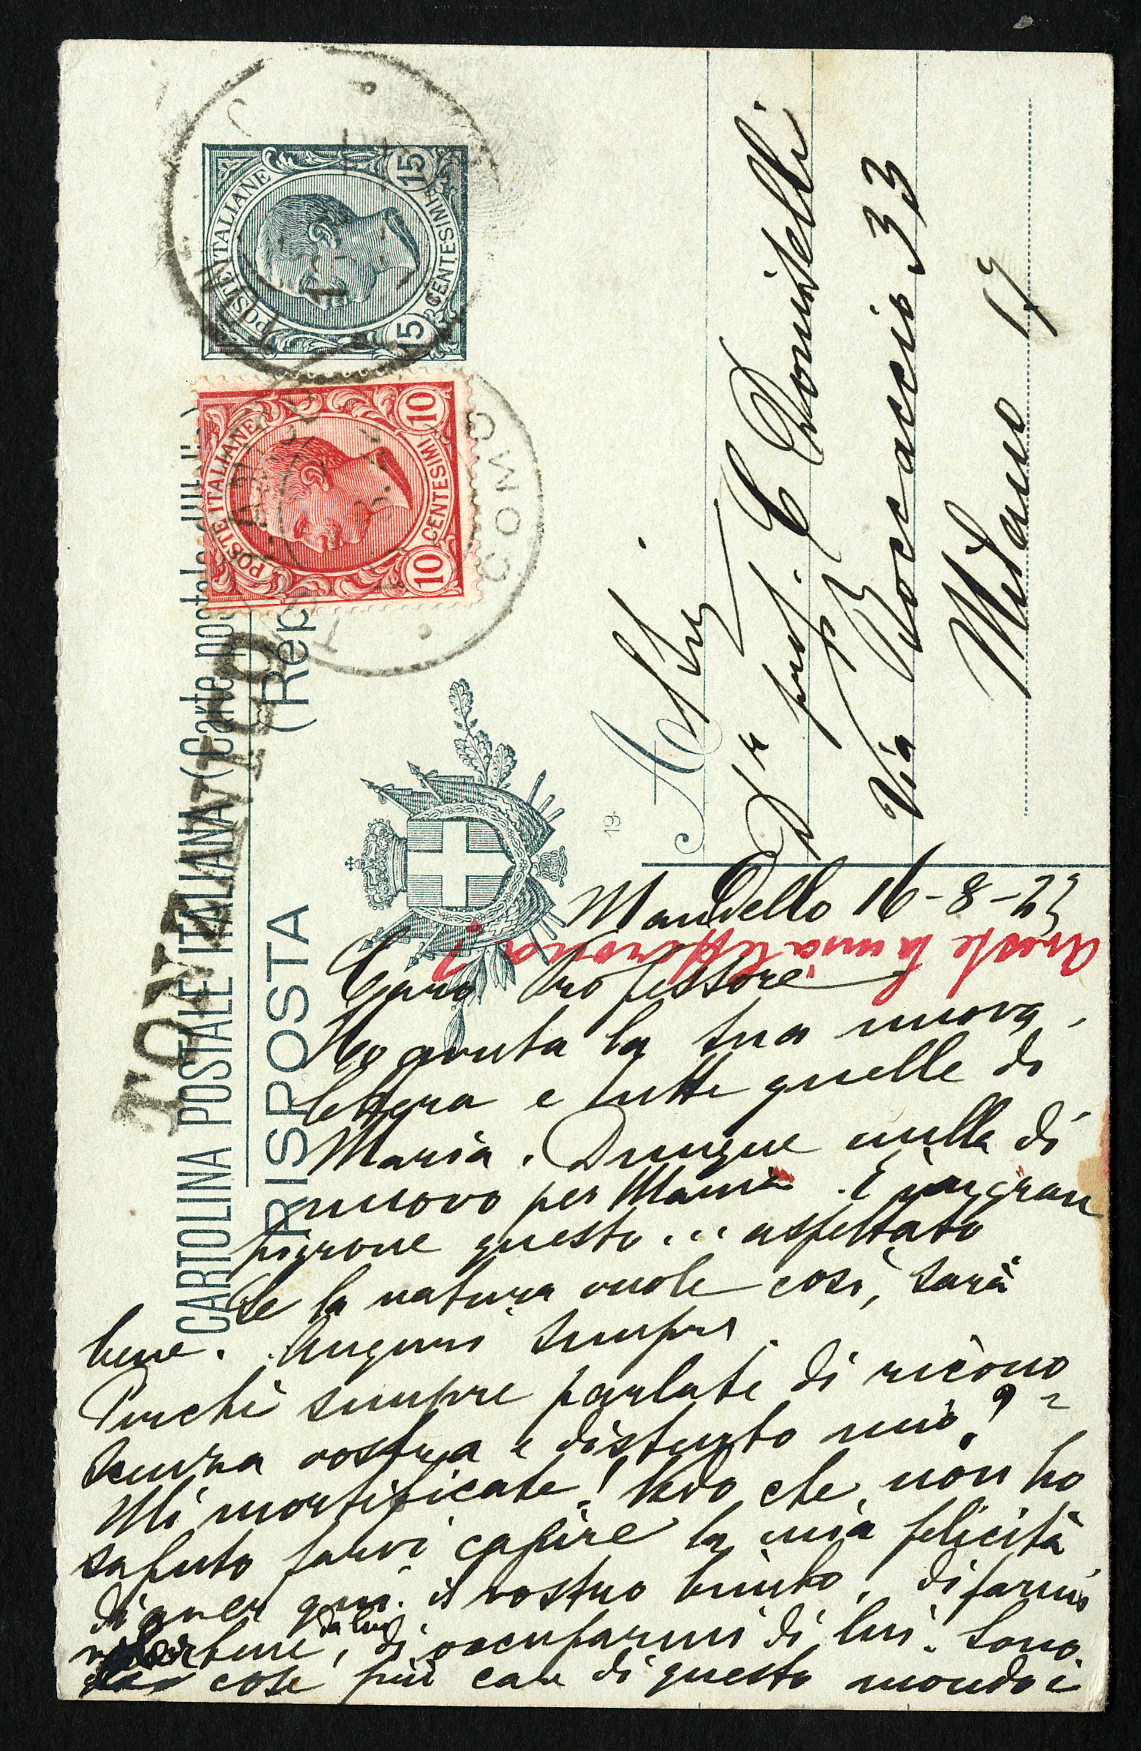 CARTOLINA POSTALE ITALIANA (Carte postale
RISPOSTA
(Rep
POSTE ITALIANE
15 CENTESIMI 15
POSTE ITALIANE
10 CENTESIMI 10
COMO
19
A
Dr prof. C. Donitelli
Via Boccaccio 33
Milano 17
Mandello 16-8-23
Aveste la mia
Caro Professore
Ho avuta la sua nuova
lettera e tutte quelle di
Maria. Dunque nulla di
nuovo per Maria. È un gran
pigrone questo... aspettato
Se la natura vuole così, sarà
bene. Auguri sempre.
Perché sempre parlate di ricono
scenza vostra e disturbo mio?!
Mi mortificate! Vedo che non ho
saputo farvi capire la mia felicità
di aver qui il vostro bimbo, di farmi
voler bene da lui, di occuparmi di lui. Sono
cose più care di questo mondo e